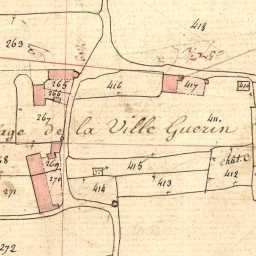 418
263
265
266
416
417
414
267
age de la Ville Guerin
411
268
415
chât. C
412
269
270
271
414
413
272